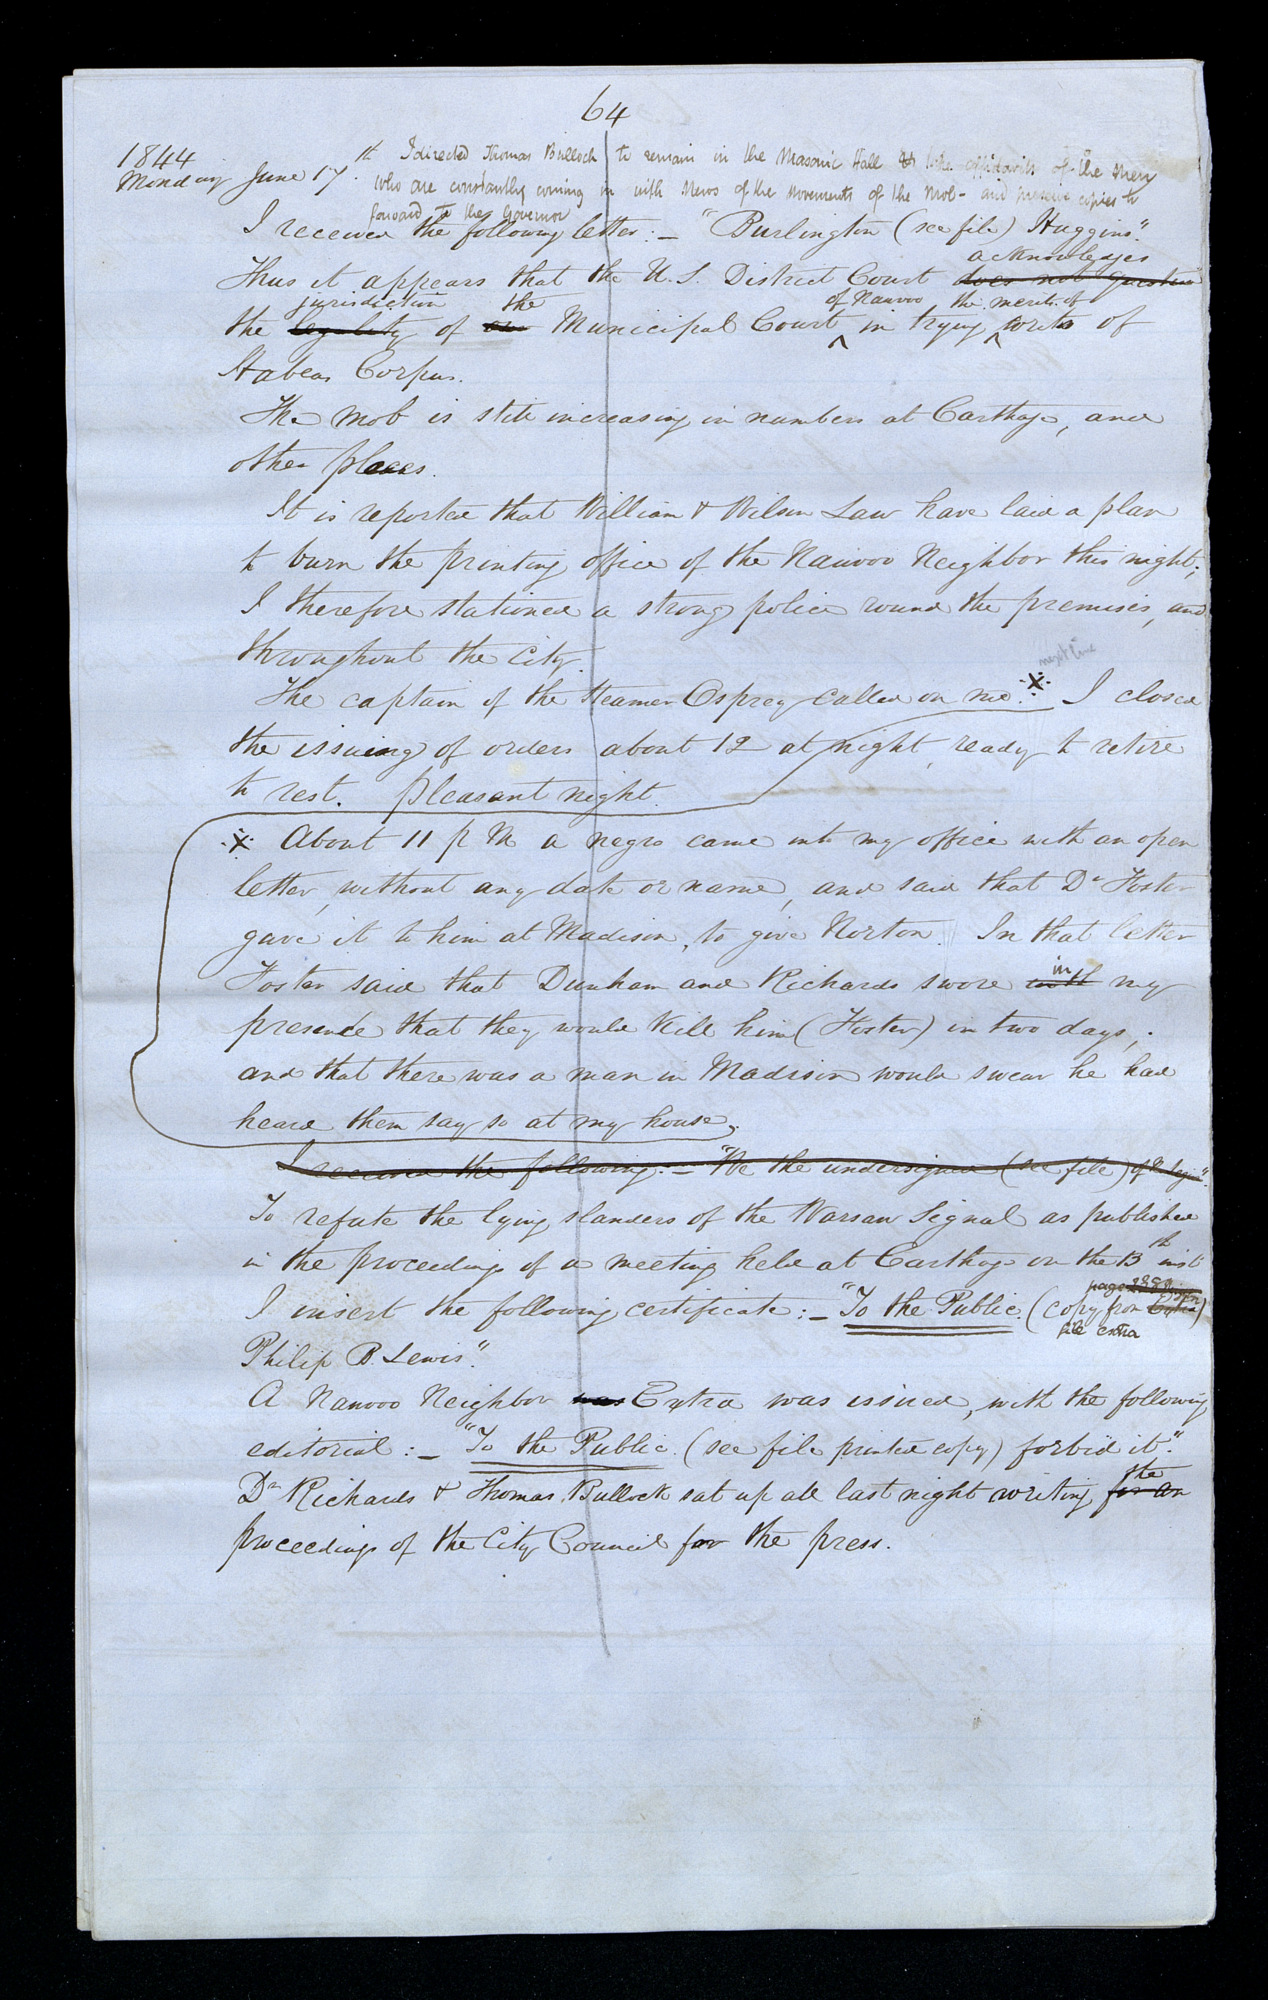 64
1844
Monday June 17th I directed Thomas Bullock to remain in the Masonic Hall to take affidavits of the men
who are constantly coming in with news of the movements of the mob - and preserve copies to
forward to the Governor
I received the following letter:— "Burlington (see file) Huggins."
acknowledges
Thus it appears that the U.S. District Court does not question
jurisdiction the of Nauvoo the merits of
the legality of our Municipal Court ^ in trying ^ writs of
Habeas Corpus.
The mob is still increasing in numbers at Carthage, and
other places.
It is reported that William & Wilson Law have laid a plan
to burn the printing office of the Nauvoo Neighbor this night;
I therefore stationed a strong police round the premises, and
throughout the City.
next line
The captain of the Steamer Osprey called on me. ※ I closed
the issuing of orders about 12 at night, ready to retire
to rest. pleasant night.
※ About 11 p m a negro came into my office with an open
letter, without any date or name, and said that Dr Foster
gave it to him at Madison, to give Norton. In that letter
in
Foster said that Dunham and Richards swore with my
presence that they would kill him (Foster) in two days,
and that there was a man in Madison would swear he had
heard them say so at my house.
I received the following:— "We the undersigned (see file) of the legion".
To refute the lying slanders of the Warsaw Signal as published
in the proceedings of a meeting held at Carthage on the 13th inst
page
I insert the following certificate:— "To the Public. (copy from Extra)
file extra
Philip B. Lewis".
A Nauvoo Neighbor was Extra was issued, with the following
editorial:— "To the Public. (see file printed copy) forbid it."
the
Dr Richards & Thomas Bullock sat up all last night writing for an
proceedings of the City Council for the press.